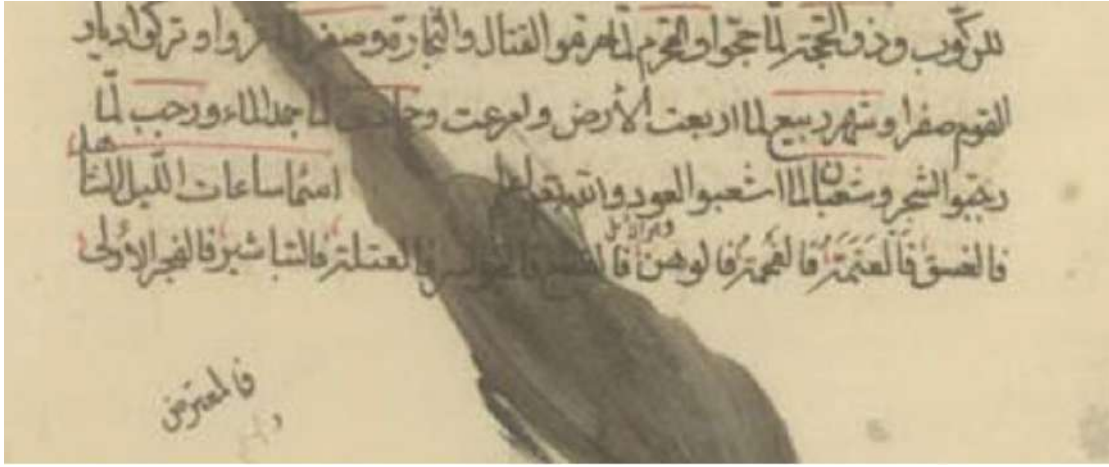 للركوب وذو الحجة لما حججوا والمحرم لما حرموا القتال والتجارة وصفر لما وتركوا ديار
القوم صفرا وشهر ربيع لما اربعت الأرض وامرعت لما جمد الماء ورجب لما
رجبوا الشجر وشعبان لما اشعبوا العود والله تعالى اعلم اسما ساعات الليل الثنا
فالغسق فالعتمة فالفحمة فالموهن فالقطع فالعتلة فالتباشير فالفجر الأولى
فالمعترض